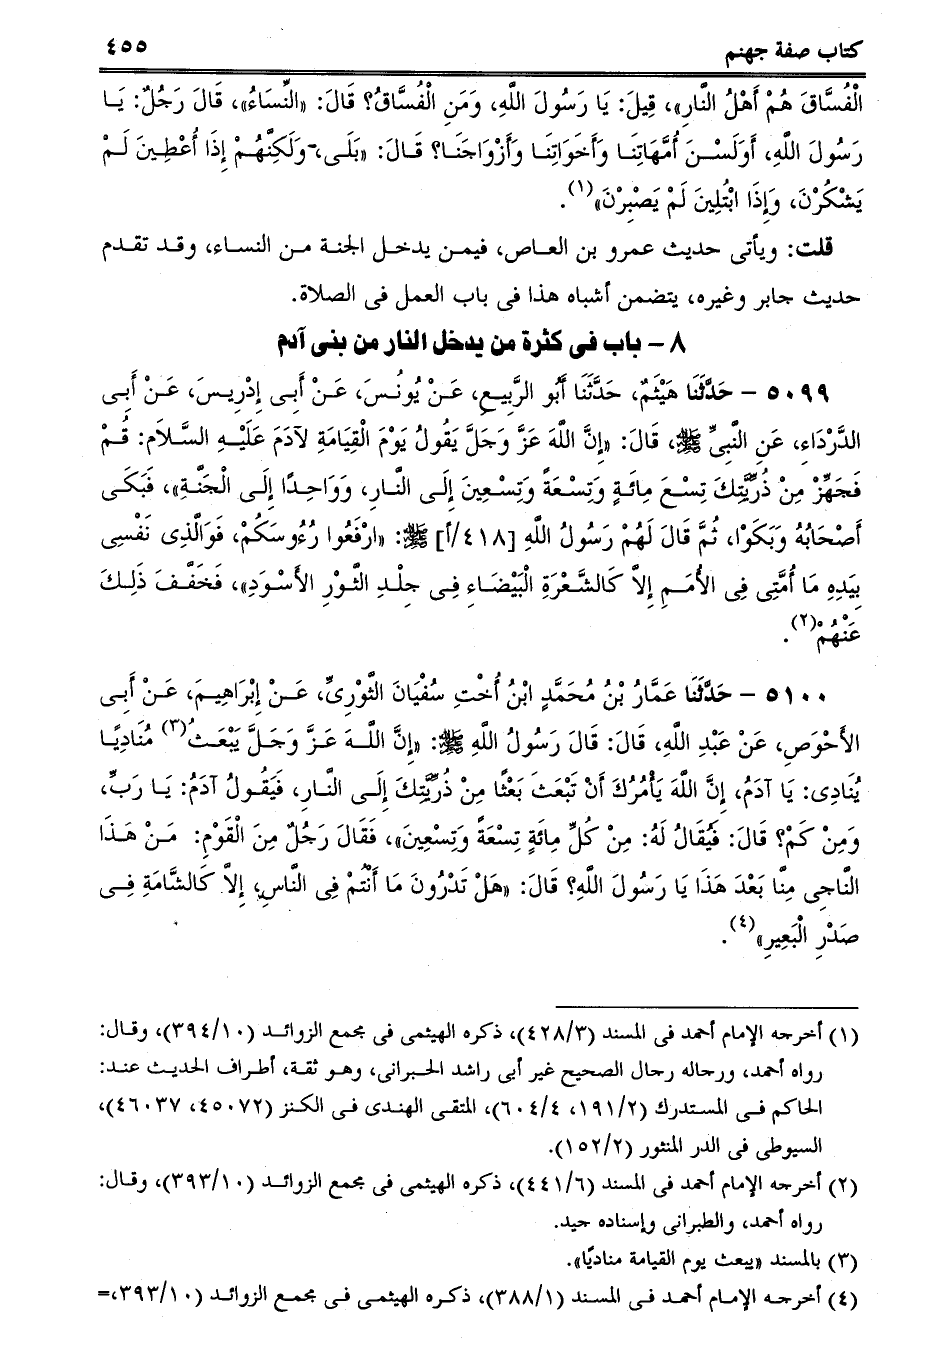 كتاب صفة جهنم ٤٥٥
الْفُسَّاقَ هُمْ أَهْلُ النَّارِ»، قِيلَ: يَا رَسُولَ اللَّهِ، وَمَنِ الْفُسَّاقُ؟ قَالَ: «النِّسَاءُ»، قَالَ رَجُلٌ: يَا
رَسُولَ اللَّهِ، أَوَلَسْنَ أُمَّهَاتِنَا وَأَخَوَاتِنَا وَأَزْوَاجَنَا؟ قَالَ: «بَلَى، وَلَكِنَّهُمْ إِذَا أُعْطِينَ لَمْ
يَشْكُرْنَ، وَإِذَا ابْتُلِينَ لَمْ يَصْبِرْنَ»(١).
قلت: ويأتى حديث عمرو بن العاص، فيمن يدخل الجنة من النساء، وقد تقدم
حديث جابر وغيره، يتضمن أشباه هذا فى باب العمل فى الصلاة.
٨ – باب فى كثرة من يدخل النار من بنى آدم
٥٠٩٩ – حَدَّثَنَا هَيْثَمٌ، حَدَّثَنَا أَبُو الرَّبِيعِ، عَنْ يُونُسَ، عَنْ أَبِى إِدْرِيسَ، عَنْ أَبِى
الدَّرْدَاءِ، عَنِ النَّبِىِّ ﷺ، قَالَ: «إِنَّ اللَّهَ عَزَّ وَجَلَّ يَقُولُ يَوْمَ الْقِيَامَةِ لآدَمَ عَلَيْهِ السَّلاَم: قُمْ
فَجَهِّزْ مِنْ ذُرِّيَّتِكَ تِسْعَ مِائَةٍ وَتِسْعَةً وَتِسْعِينَ إِلَى النَّارِ، وَوَاحِدًا إِلَى الْجَنَّةِ»، فَبَكَى
أَصْحَابُهُ وَبَكَوْا، ثُمَّ قَالَ لَهُمْ رَسُولُ اللَّهِ [٤١٨/أ] ﷺ: «ارْفَعُوا رُءُوسَكُمْ، فَوَالَّذِى نَفْسِى
بِيَدِهِ مَا أُمَّتِى فِى الأُمَمِ إِلاَّ كَالشَّعْرَةِ الْبَيْضَاءِ فِى جِلْدِ الثَّوْرِ الأَسْوَدِ»، فَخَفَّفَ ذَلِكَ
عَنْهُمْ(٢).
٥١٠٠ – حَدَّثَنَا عَمَّارُ بْنُ مُحَمَّدٍ ابْنُ أُخْتِ سُفْيَانَ الثَّوْرِىِّ، عَنْ إِبْرَاهِيمَ، عَنْ أَبِى
الأَحْوَصِ، عَنْ عَبْدِ اللَّهِ، قَالَ: قَالَ رَسُولُ اللَّهِ ﷺ: «إِنَّ اللَّهَ عَزَّ وَجَلَّ يَبْعَثُ(٣) مُنَادِيًا
يُنَادِى: يَا آدَمُ، إِنَّ اللَّهَ يَأْمُرُكَ أَنْ تَبْعَثَ بَعْثًا مِنْ ذُرِّيَّتِكَ إِلَى النَّارِ، فَيَقُولُ آدَمُ: يَا رَبِّ،
وَمِنْ كَمْ؟ قَالَ: فَيُقَالُ لَهُ: مِنْ كُلِّ مِائَةٍ تِسْعَةً وَتِسْعِينَ»، فَقَالَ رَجُلٌ مِنَ الْقَوْمِ: مَنْ هَذَا
النَّاجِى مِنَّا بَعْدَ هَذَا يَا رَسُولَ اللَّهِ؟ قَالَ: «هَلْ تَدْرُونَ مَا أَنْتُمْ فِى النَّاسِ، إِلاَّ كَالشَّامَةِ فِى
صَدْرِ الْبَعِيرِ»(٤).
(١) أخرجه الإمام أحمد فى المسند (٤٢٨/٣)، ذكره الهيثمى فى مجمع الزوائد (٣٩٤/١٠)، وقال:
رواه أحمد، ورجاله رجال الصحيح غير أبى راشد الحبرانى، وهو ثقة، أطراف الحديث عند:
الحاكم فى المستدرك (١٩١/٢، ٦٠٤/٤)، المتقى الهندى فى الكنز (٤٥٠٧٢، ٤٦٠٣٧)،
السيوطى فى الدر المنثور (١٥٢/٢).
(٢) أخرجه الإمام أحمد فى المسند (٤٤١/٦)، ذكره الهيثمى فى مجمع الزوائد (٣٩٣/١٠)، وقال:
رواه أحمد، والطبرانى وإسناده جيد.
(٣) بالمسند «يبعث يوم القيامة مناديًا».
(٤) أخرجه الإمام أحمد فى المسند (٣٨٨/١)، ذكره الهيثمى فى مجمع الزوائد (٣٩٣/١٠)،=